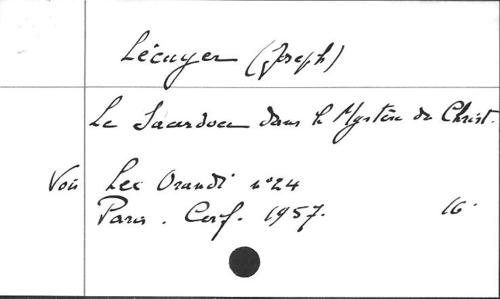 Lécuyer (Joseph)
Le Sacerdoce dans le Mystère du Christ.
Voir Lex Orandi n°24
Paris. Cerf. 1957. 16.